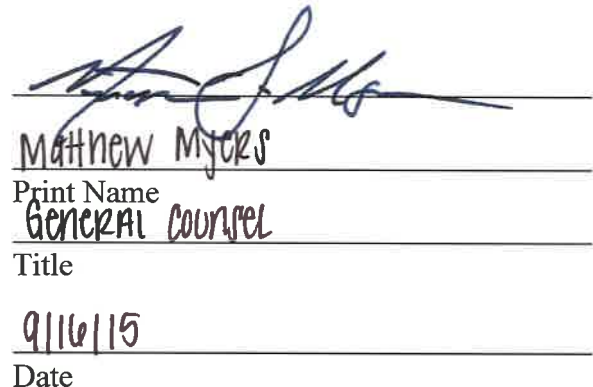 Matthew Myers
Print Name
General Counsel
Title
9/16/15
Date